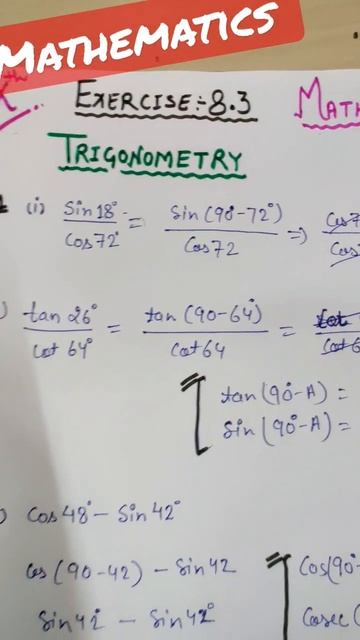 MATHEMATICS
Xth EXERCISE:-8.3 MATH
TRIGONOMETRY
(i) Sin18°/Cos72° = Sin(90-72°)/Cos72 =>
tan26°/Cot64° = tan(90-64°)/Cot64 =
tan(90°-A) =
Sin(90°-A) =
Cos48° - Sin42°
Cos(90-42) - Sin42
Cos(90°-
Sin42° - Sin42°
Cosec(